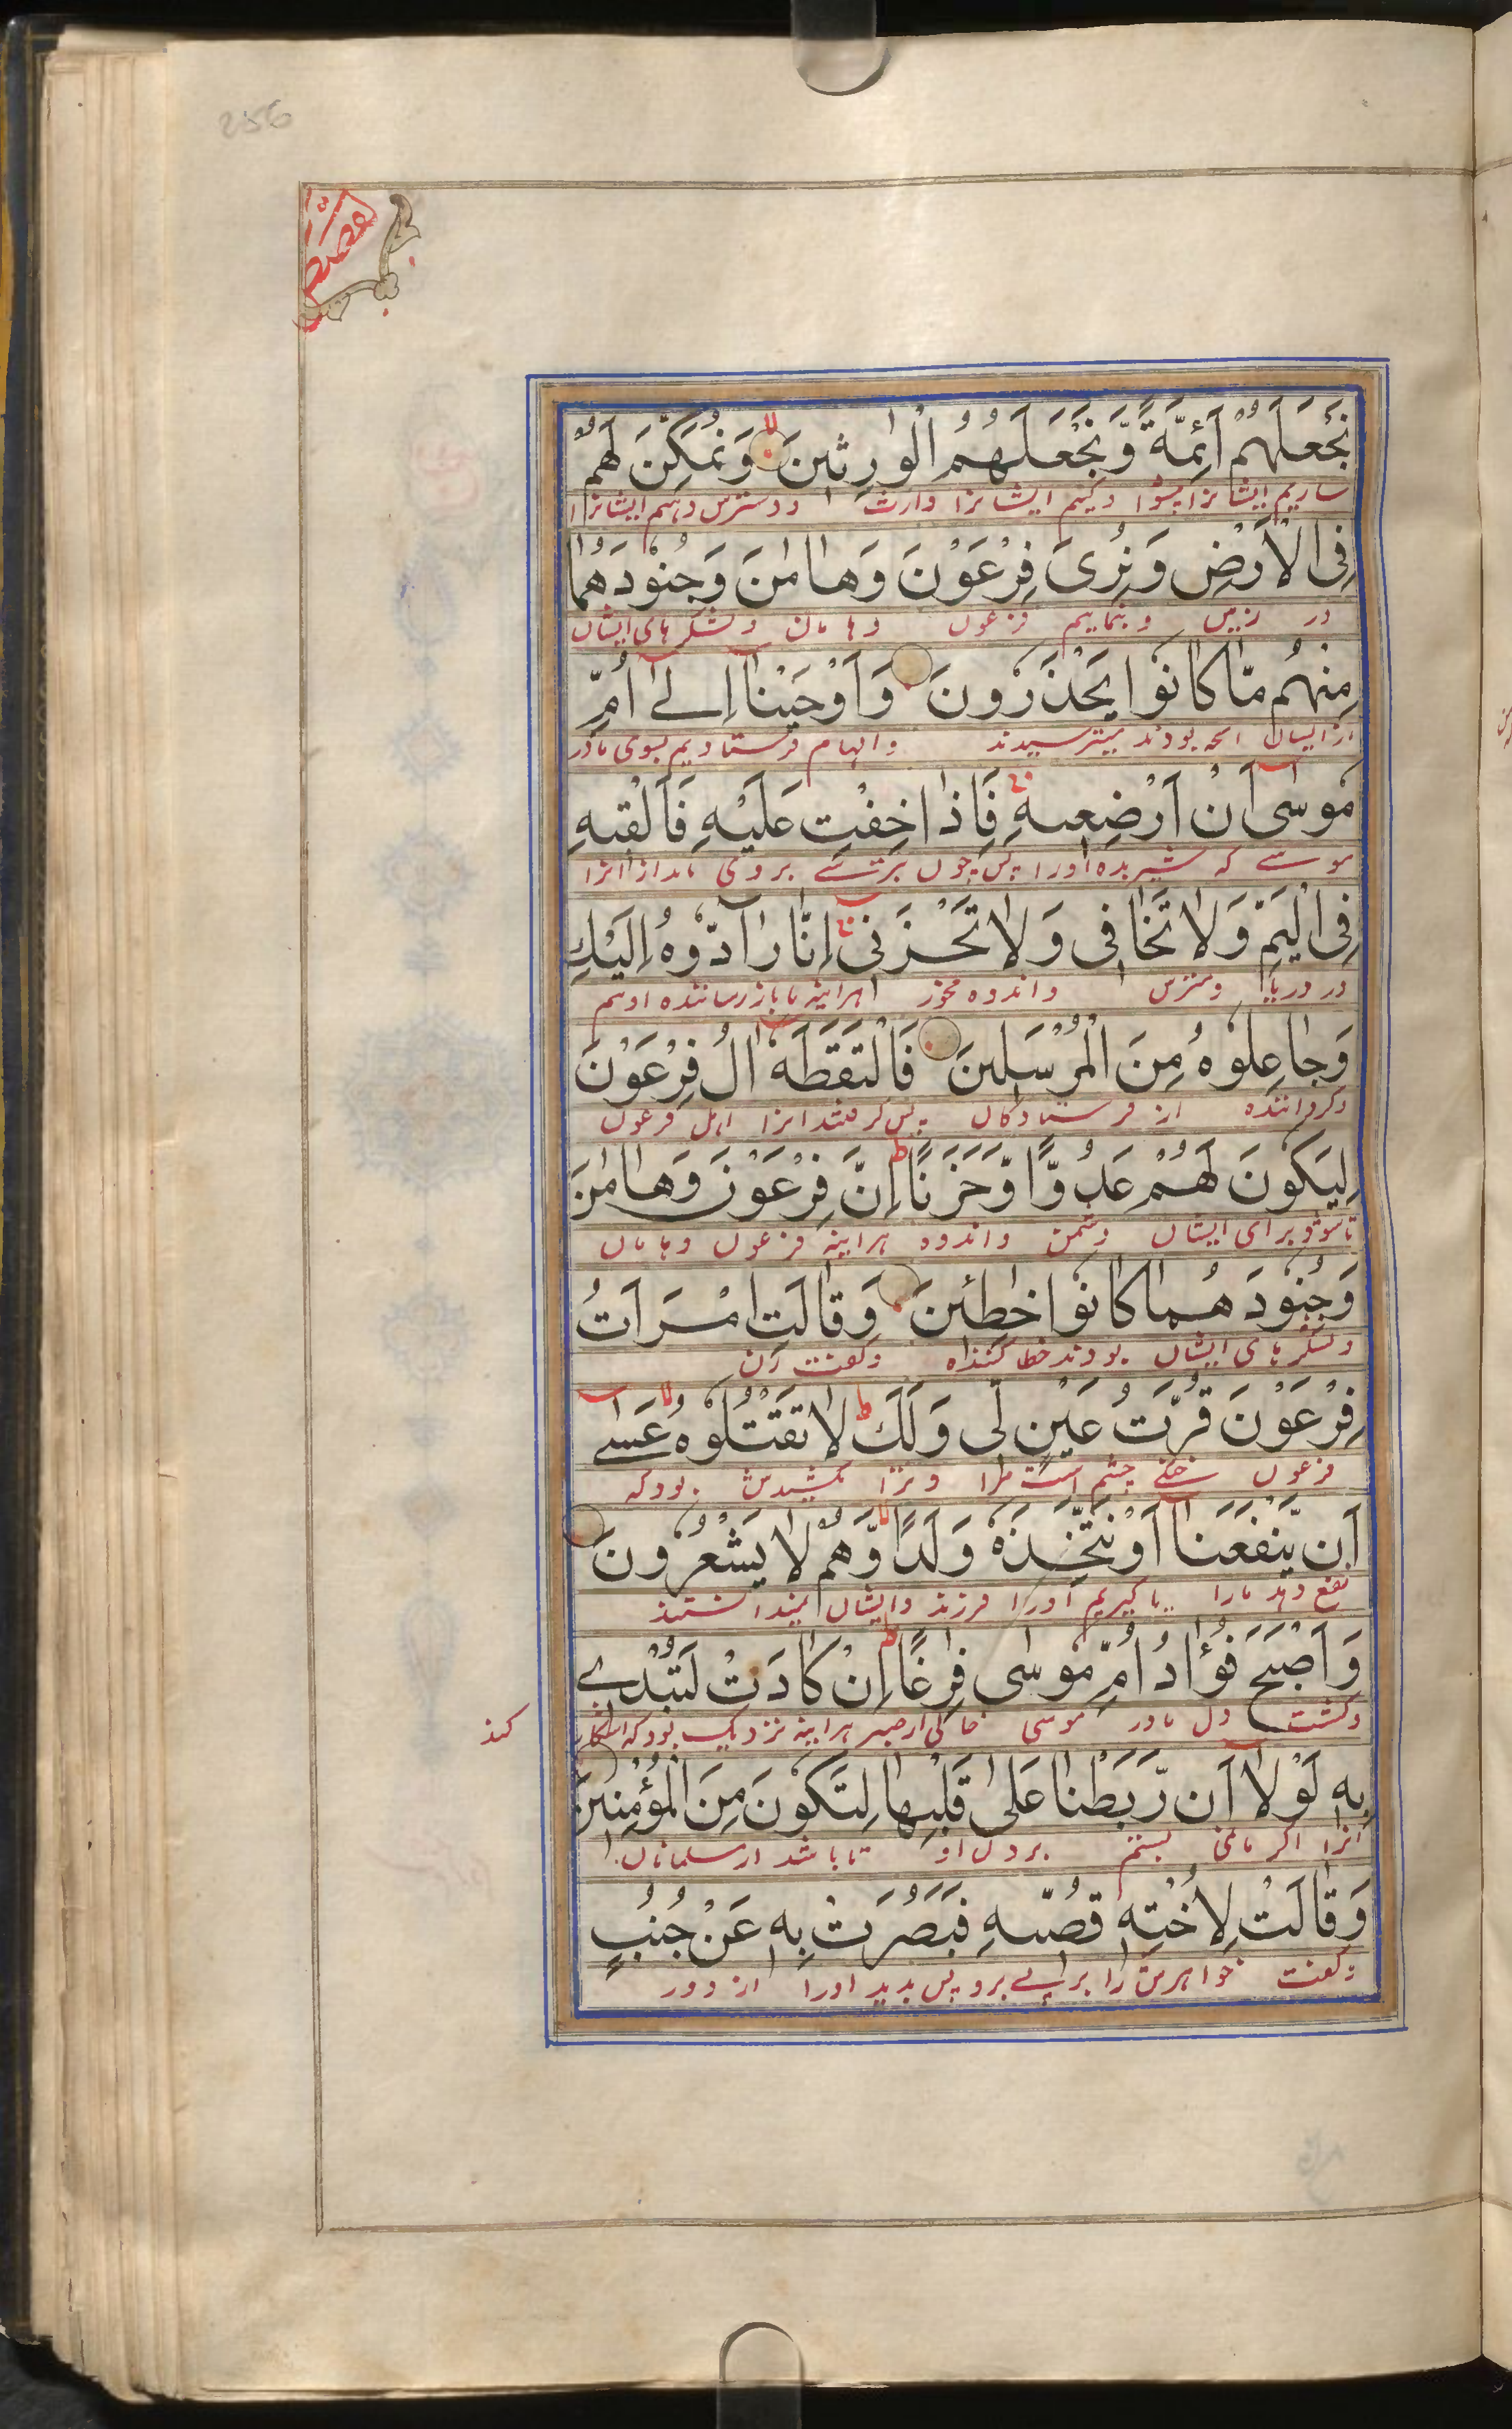 256
قصص
نَجْعَلَهُمْ اَئِمَّةً وَّنَجْعَلَهُمُ الْوٰرِثِينَ وَنُمَكِّنَ لَهُمْ
سازیم ایشانرا پیشوا و کنیم ایشانرا وارث و دسترس دهیم ایشانرا
فِى الْاَرْضِ وَنُرِىَ فِرْعَوْنَ وَهَامٰنَ وَجُنُوْدَهُمَا
در زمین و بنماییم فرعون و هامان و لشکرهای ایشان
مِنْهُمْ مَّا كَانُوْا يَحْذَرُونَ وَاَوْحَيْنَا اِلٰى اُمِّ
از ایشان انچه بودند میترسیدند و الهام فرستادیم بسوی مادر
مُوسٰى اَنْ اَرْضِعِيهِ فَاِذَا خِفْتِ عَلَيْهِ فَاَلْقِيهِ
موسی که شیر بده اورا پس چون بترسی بروی بنداز انرا
فِى الْيَمِّ وَلَا تَخَافِى وَلَا تَحْزَنِى اِنَّا رَادُّوْهُ اِلَيْكِ
در دریا و مترس و اندوه مخور هراینه ما باز رساننده اویم
وَجَاعِلُوْهُ مِنَ الْمُرْسَلِينَ فَالْتَقَطَهُ اٰلُ فِرْعَوْنَ
و گرداننده از فرستادگان پس گرفتند انرا اهل فرعون
لِيَكُونَ لَهُمْ عَدُوًّا وَّحَزَنًا اِنَّ فِرْعَوْنَ وَهَامٰنَ
تا شود برای ایشان دشمن و اندوه هراینه فرعون و هامان
وَجُنُوْدَهُمَا كَانُوْا خٰطِئِينَ وَقَالَتِ امْرَاَتُ
و لشکرهای ایشان بودند خطا کننده و گفت زن
فِرْعَوْنَ قُرَّتُ عَيْنٍ لِّى وَلَكَ لَا تَقْتُلُوْهُ عَسٰى
فرعون خنکی چشم است مرا و ترا مکشیدش بود که
اَن يَّنْفَعَنَا اَوْ نَتَّخِذَهُ وَلَدًا وَّهُمْ لَا يَشْعُرُونَ
نفع دهد مارا یا گیریم اورا فرزند و ایشان نمیدانستند
وَاَصْبَحَ فُؤَادُ اُمِّ مُوسٰى فٰرِغًا اِنْ كَادَتْ لَتُبْدِى
و گشت دل مادر موسی خالی از صبر هراینه نزدیک بود که اشکار
کند
بِهِ لَوْلَا اَن رَّبَطْنَا عَلٰى قَلْبِهَا لِتَكُونَ مِنَ الْمُؤْمِنِينَ
انرا اگر ما نمی بستیم بر دل او تا باشد از مسلمانان
وَقَالَتْ لِاُخْتِهِ قُصِّيهِ فَبَصُرَتْ بِهِ عَنْ جُنُبٍ
و گفت خواهرش را بر پی برو پس بدید اورا از دور